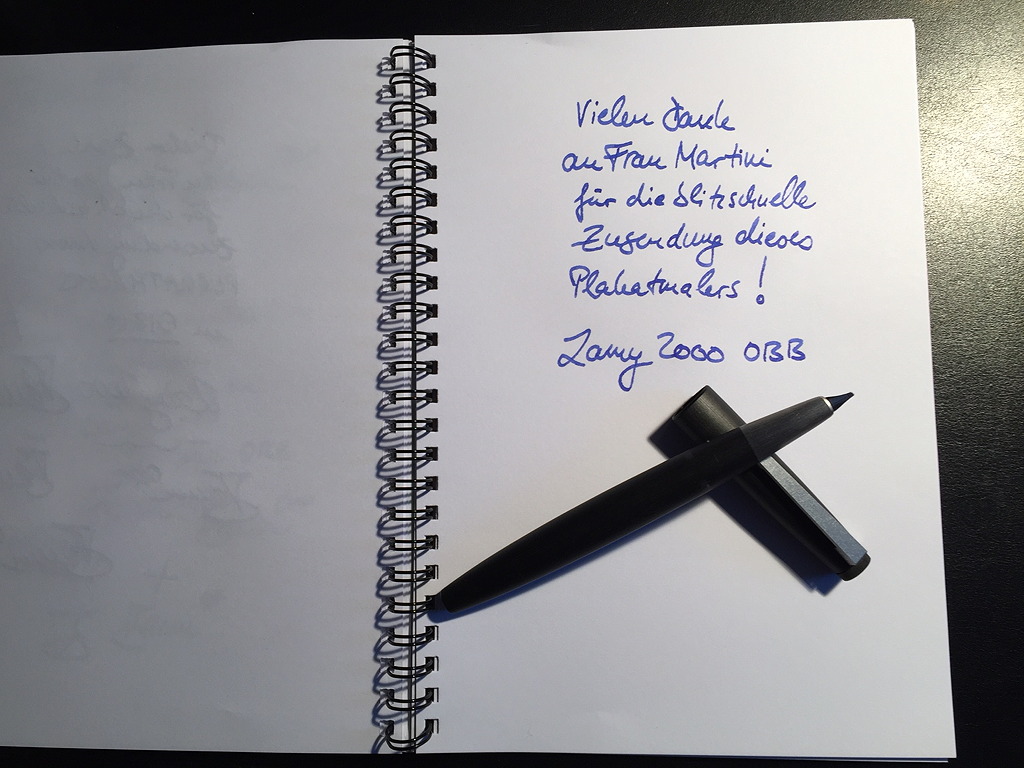 Vielen Dank
an Frau Martini
für die blitzschnelle
Zusendung dieses
Plakatmalers!
Lamy 2000 OBB